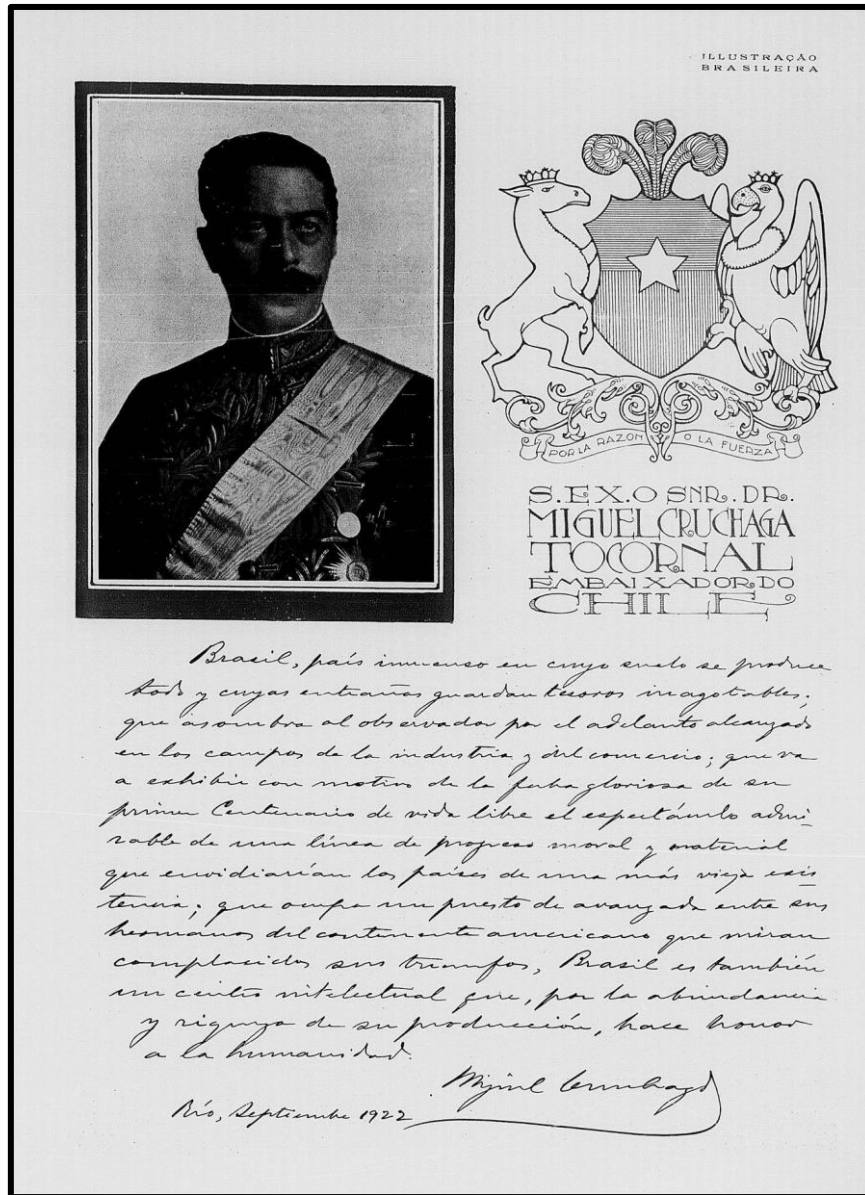 ILLUSTRAÇÃO
BRASILEIRA
POR LA RAZON O LA FUERZA
S. EX. O SNR. DR.
MIGUEL CRUCHAGA
TOCORNAL
EMBAIXADOR DO
CHILE
Brasil, país inmenso en cuyo suelo se produce
todo y cuyas entrañas guardan tesoros inagotables;
que asombra al observador por el adelanto alcanzado
en los campos de la industria y del comercio; que va
a exhibir con motivo de la fecha gloriosa de su
primer Centenario de vida libre el espectáculo admi-
rable de una línea de progreso moral y material
que envidiarían los países de una más vieja exis
tencia; que ocupa un puesto de avanzada entre sus
hermanos del continente americano que miran
complacidos sus triunfos, Brasil es también
un centro intelectual que, por la abundancia
y riqueza de su producción, hace honor
a la humanidad.
Miguel Cruchaga
Río, Septiembre 1922